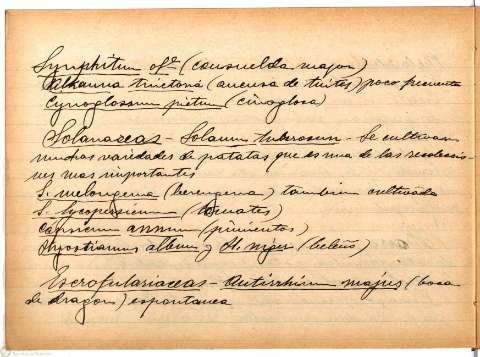 Symphitum ofª (consuelda major)
Alkanna tinctoria (ancusa de tintes) poco frecuente
Cynoglossum pictum (cinoglosa)
Solanaceas - Solanum tuberosum - Se cultivan
muchos varidades de patatas que es una de las recoleccio-
nes mas importantes
S. melongena (berengena) tambien cultivada
S. lycopersicum (tomates)
Capsicum annum (pimientos)
Hyosciamus albus y H. niger (beleño)
Escrofulariaceas - Antirrhinum majus (boca
de dragon) espontanea